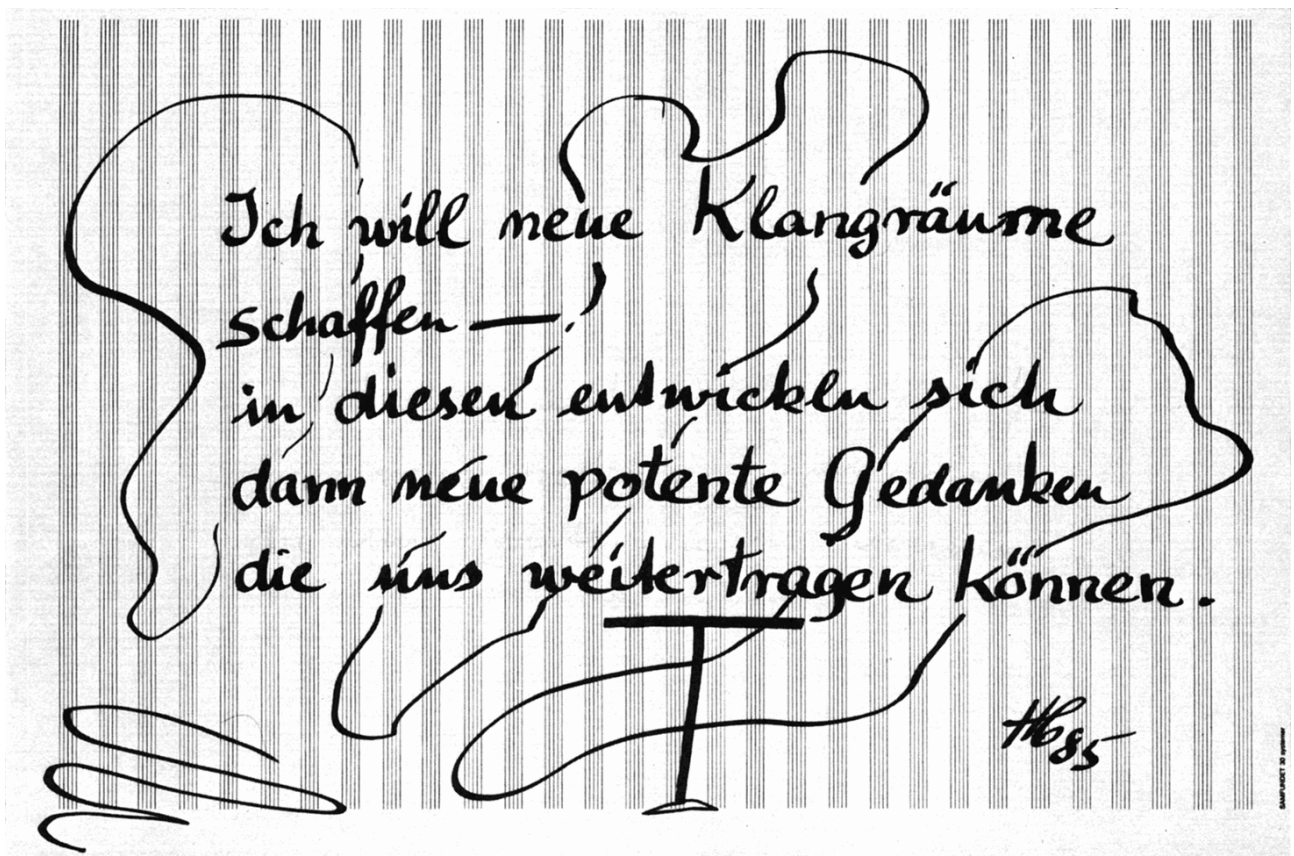 Ich will neue Klangräume
schaffen —
in diesen entwickeln sich
dann neue potente Gedanken
die uns weitertragen können.
85
SAMFUNDET 30 systemer